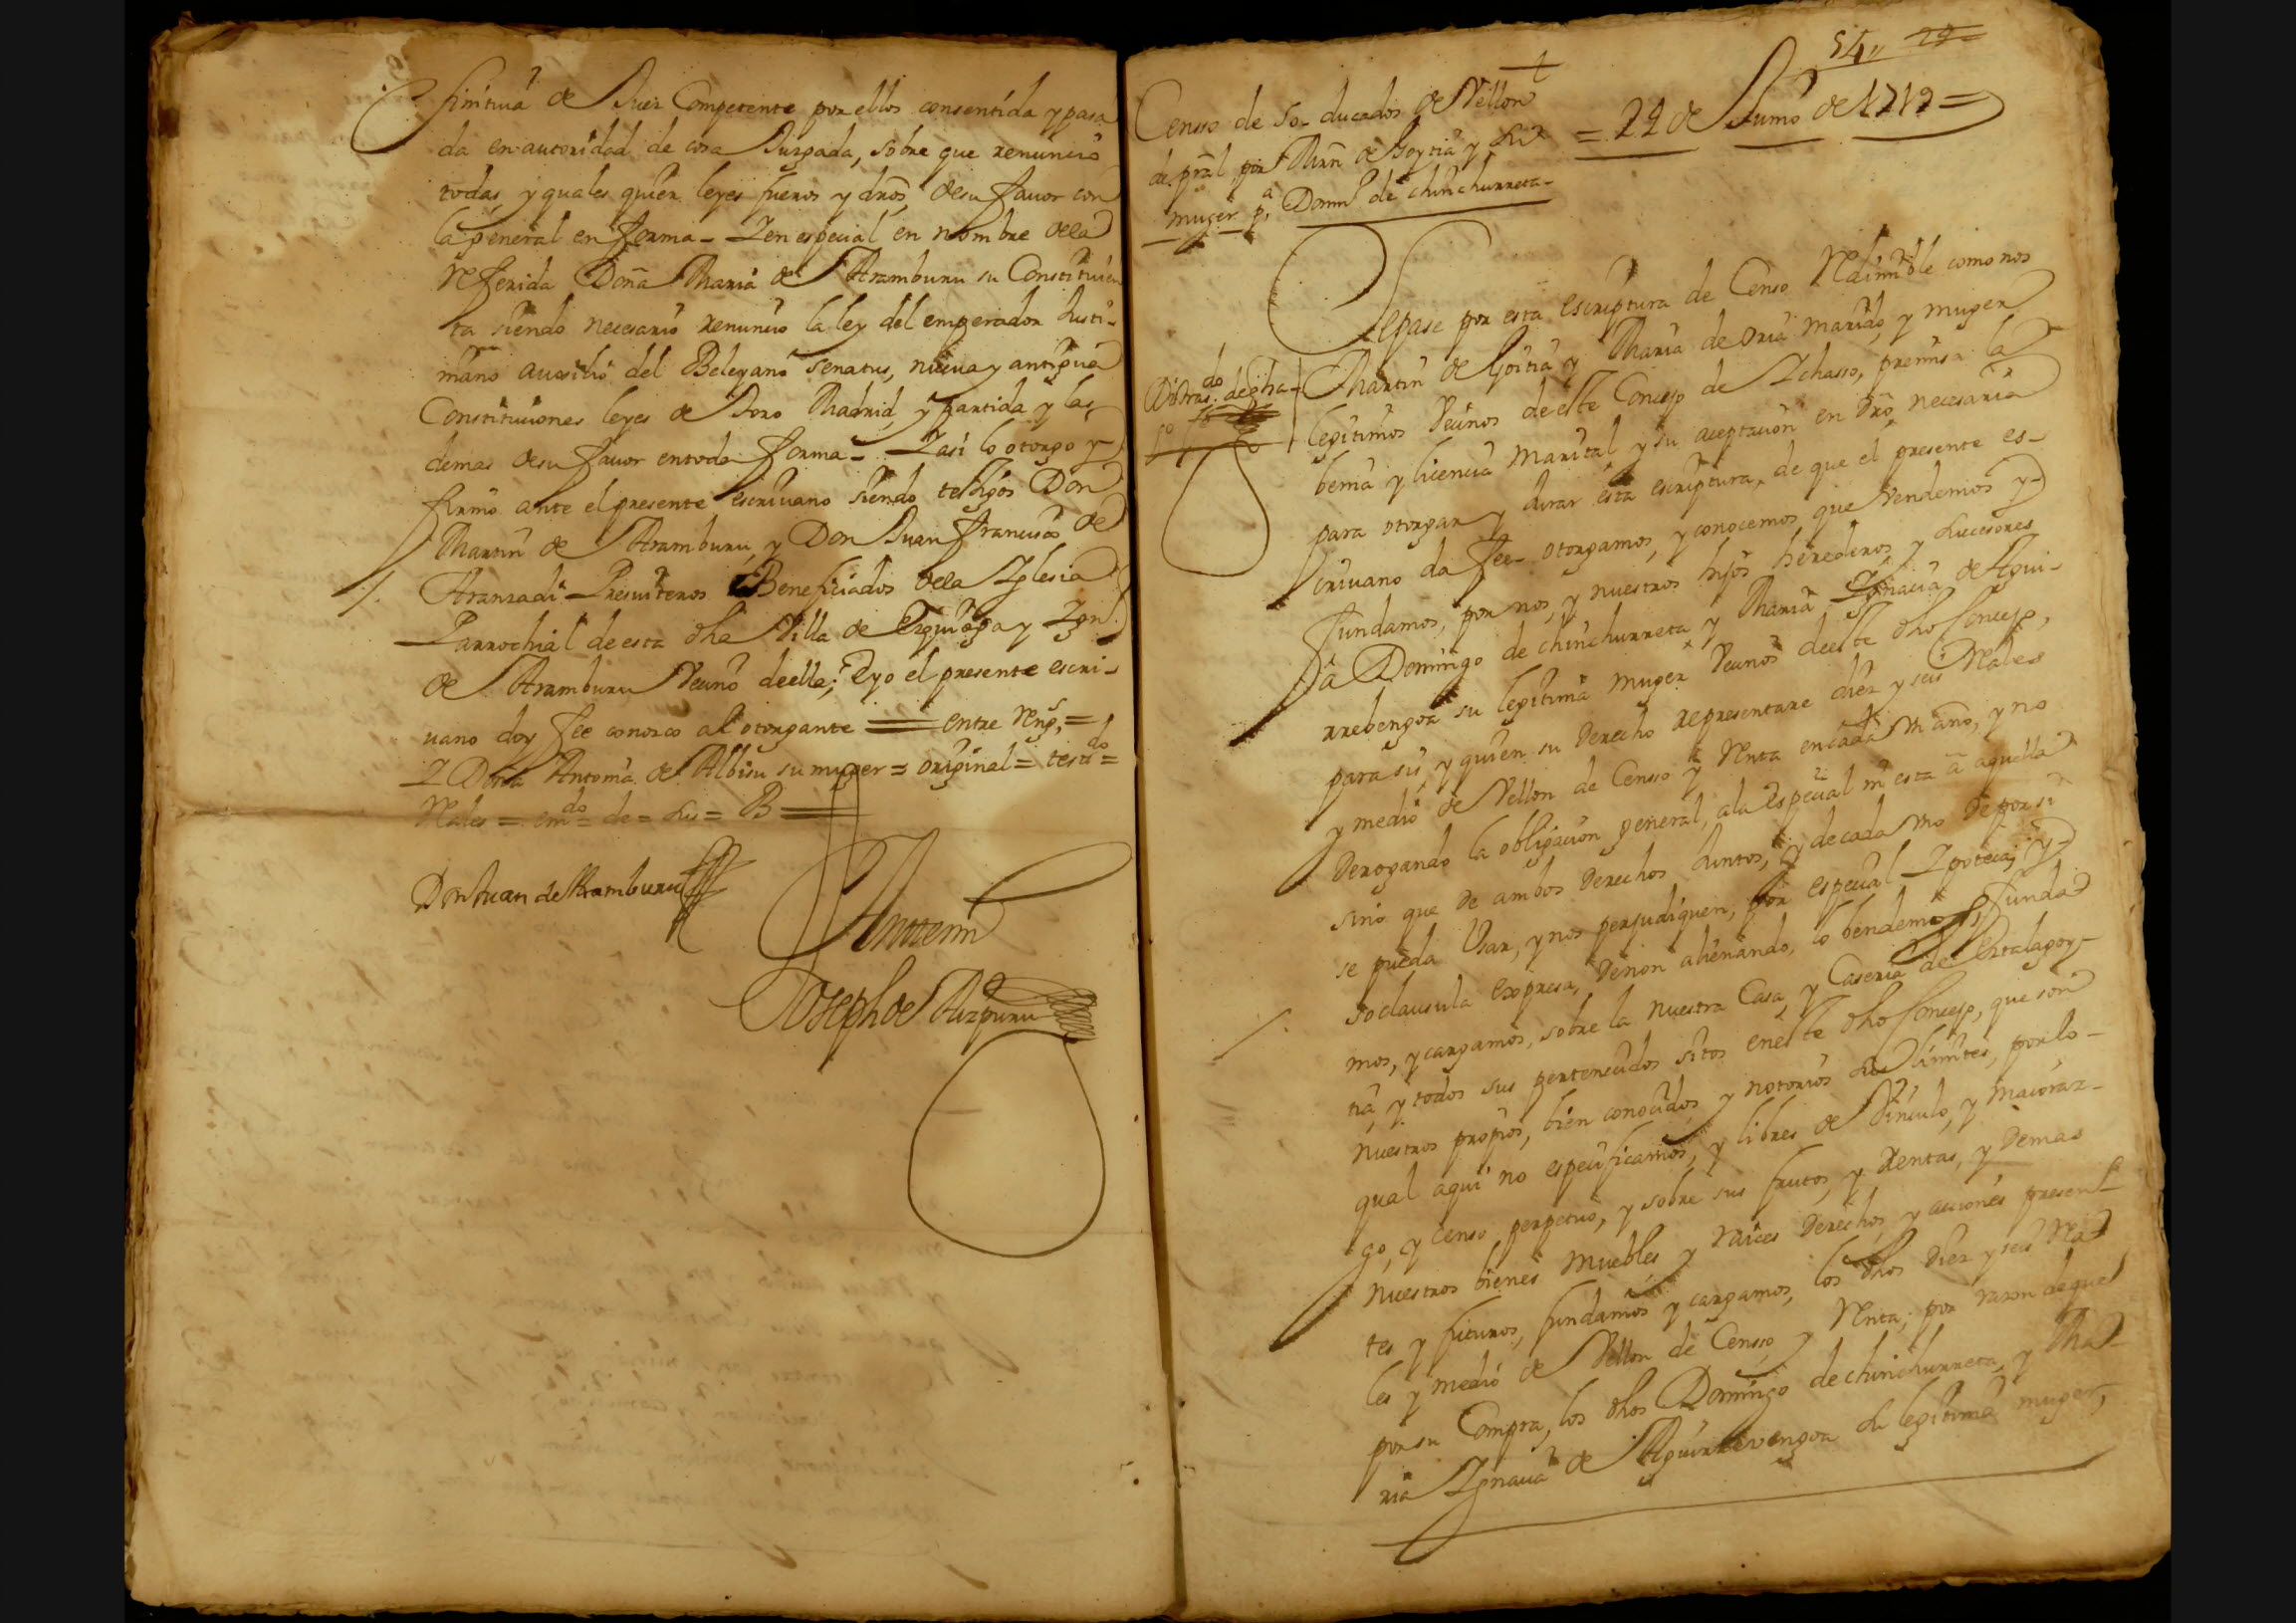 finitiua de Juez Competente por ellos consentida y pasa
da en autoridad de cosa Juzgada, sobre que renuncio
todas, y quales quier leyes fueros y dros, desu fauor con
la general en forma - Y en especial en nombre dela
Referida Doña Maria de Aramburu su Constituien
ta siendo necesario renuncio la ley del emperador Justi-
niano auxilio del Beleyano senatus, nueua y antigua
Constituciones leyes de Toro Madrid, y partida y las
demas desu fauor entoda forma - Y asi lo otorgo y
firmo ante el presente escriuano siendo testigos Don
Martin de Aramburu, y Don Juan Francisco de
Aranzadi Presuiteros Beneficiados dela Iglesia
Parrochial de esta dha Villa de Ezquioga y Ygn
de Aramburu Vecino deella; Eyo el presente escri-
uano doy fee conozco al otorgante = entre Reng, =
Y Doña Antonia de Albisu su muger = original = testdo =
Reales = emdo = de = su = B =
Don Juan de Aramburu
Antemi
Joseph de Aizpuru
54,, 29
Censso de 50 ducados de Vellon
de pral, por Mrn de Goytia y su
muger pa, Domo de chinchurreta-
= 22 de Junio de 1717 =
Sepase por esta escriptura de Censo Redimible como nos
Martin de Goitia y Maria de Oria marido, y muger
legitimos Vecinos de este Concejo de Ichasso, premisa la
benia y licencia marital y su aceptacion en dro, necesaria
para otorgar y Jurar esta escriptura, de que el presente es-
criuano da fee - otorgamos, y conocemos, que Vendemos y
fundamos, por nos, y nuestros hijos herederos, y sucesores
â Domingo de chinchurreta y Maria Ignacia de Agui-
rrebengoa su legitima muger Vecinos deeste dho Concejo,
para sis, y quien su derecho representare diez y seis Reales
y medio de Vellon de Censso y Renta encada Vn año, y no
derogando la obligacion general, ala especial ni esta â aquella
sino que de ambos derechos Juntos, y decada Vno de por si
se pueda Vsar, y nos perjudiquen, por especial Ypoteca, y
so clausula expresa, denon alienando, lo bendemos, funda
mos, y cargamos, sobre la nuestra Casa, y Caseria de
tia, y todos sus pertenecidos sitos eneste dho Concejo, que son
nuestros propios, bien conocidos, y notorios sus limites, porlo-
qual aqui no especificamos, y libres de Vinculo, y maioraz-
go, y censo perpetuo, y sobre sus frutos, y Rentas, y demas
nuestros bienes muebles, y raices derechos, y acciones presen-
tes y futuros, fundamos y cargamos, los dhos diez y seis Rea
les y medio de Vellon de Censso, y Renta; por razon deque
por su Compra, los dhos Domingo de chinchurreta, y Ma-
ria Ignacia de Aguirrevengoa su legitima muger,